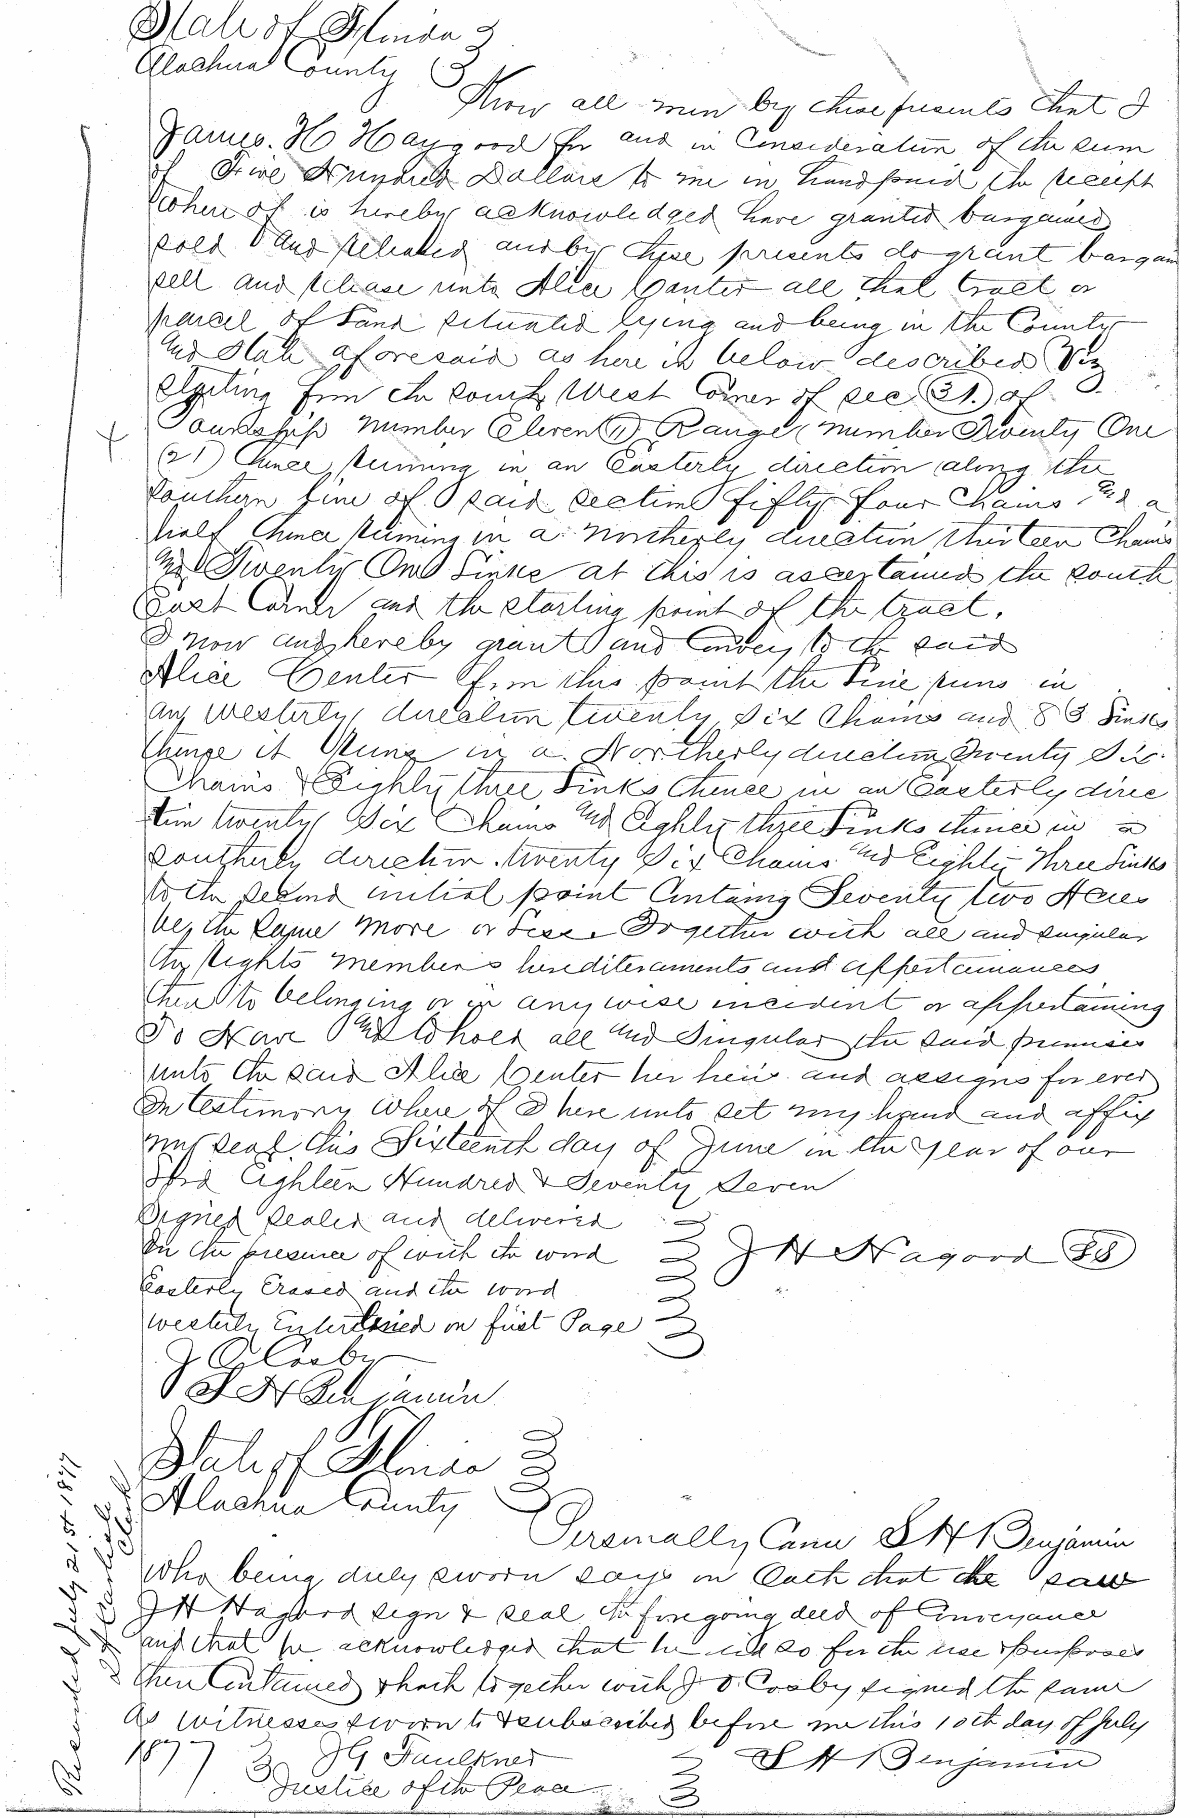 State of Florida
Alachua County
Know all men by these presents that I
James. H Haygood for and in Consideration of the sum
of Five Hundred Dollars to me in hand paid the receipt
where of is hereby acknowledged have granted bargained
sold and released and by these presents do grant bargain
sell and release unto Alice Center all that tract or
parcel of Land situated lying and being in the County
and State aforesaid as here in below described Viz
Starting from the south West Corner of sec (31.) of
Township Number Eleven (11) Range Number Twenty One
(21) thence running in an Easterly direction along the
Southern line of said section fifty four Chains and a
half thence running in a Northerly direction thirteen Chains
and Twenty One Links at this is ascertained the south
East Corner and the starting point of the tract.
I now and hereby grant and Convey to the said
Alice Center from this point the Line runs in
any westerly direction twenty six Chains and 83 Links
thence it Runs in a Northerly direction Twenty Six
Chains & Eighty three Links thence in an Easterly direc
tion twenty Six Chains and Eighty three Links thence in a
southerly direction twenty Six Chains and Eighty Three Links
to the second initial point Containg Seventy two Acres
be the same more or Less. Together with all and singular
the Rights members herediteraments and appertainances
there to belonging or in any wise incident or appertaining
To Have and to hold all and Singular the said premises
unto the said Alice Center her heirs and assigns for ever
In testimony where of I here unto set my hand and affix
my seal this Sixteenth day of June in the year of our
Lord Eighteen Hundred & Seventy Seven
Signed sealed and delivered
In the presence of with the word
Easterly Erased and the word
westerly Interlined on first Page
J H Hagood (SS)
J O Cosby
S H Benjamin
State of Florida
Alachua County
Personally Came S H Benjamin
who being duly sworn says on Oath that he saw
J H Hagood sign & seal the foregoing deed of Conveyance
and that he acknowledged that he did so for the use & purposes
there Contained & that together with J O Cosby signed the same
as witnesses sworn to & subscribed before me this 10th day of July
1877
J G Faulkner
S H Benjamin
Justice of the Peace
Recorded July 21st 1877
Clerk